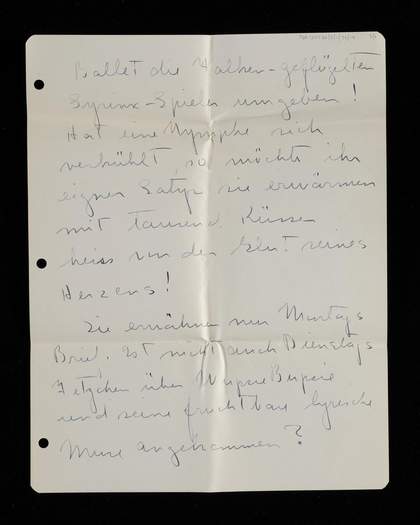 Ballet die Wolken-geflügelten
Syrinx-Spieler umgeben!
Hat eine Nymphe sich
verkühlt, so möchte ihr
eigner Satyr sie erwärmen
mit tausend Küssen
heiss von der Glut seines
Herzens!
Sie erwähnen nur Montags
Brief. Ist nicht auch Dienstags
über
und seine fruchtbare lyrische
Muse angekommen?